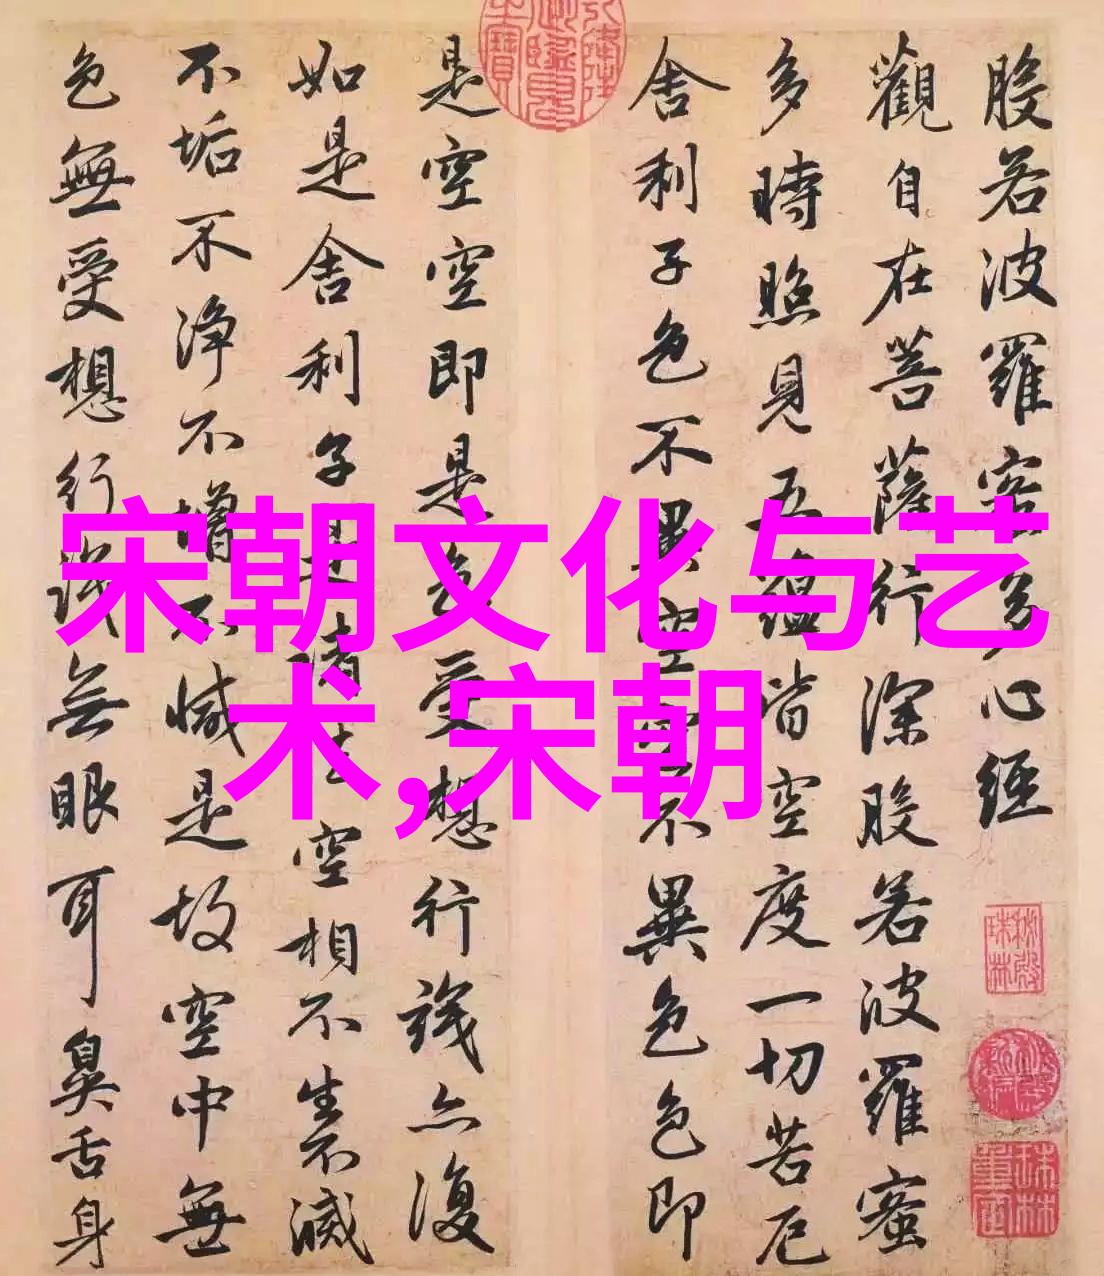 般若波羅蜜多心經
觀自在菩薩行深般若波羅蜜
多時照見五蘊皆空度一切苦厄
舍利子色不異空空不異色色即
是空空即是色受想行識亦復
如是舍利子是諸法空相不生不滅
不垢不淨不增不減是故空中無
色無受想行識無眼耳鼻舌身
宋朝文化与艺
术,宋朝